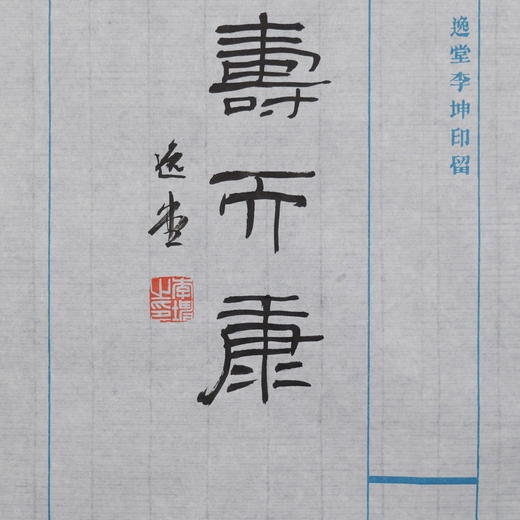 逸堂李坤印留
壽而康
逸堂